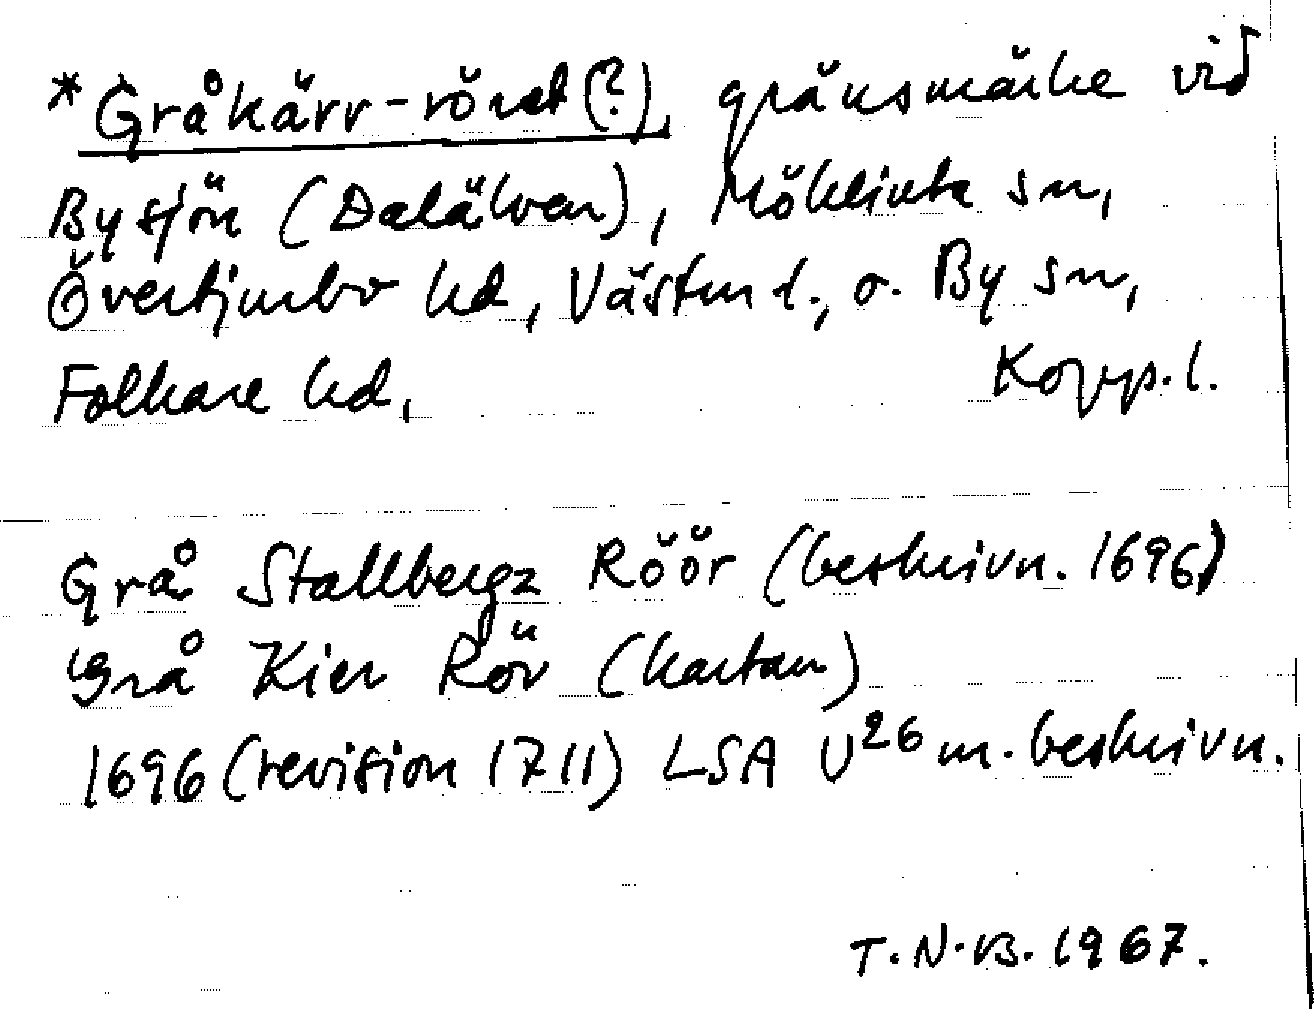 *Gråkärr-röret(?), gränsmärke vid
Bysjön (Dalälven), Möklinta sn,
Övertjurbo hd, Västm l., o. By sn,
Folkare hd, Kopp. l.
Grå Stallbergz Röör (beskrivn. 1696)
Grå Kier Rör (kartan)
1696 (revision 1711) LSA U26 m. beskrivn.
T.N.B. 1967.